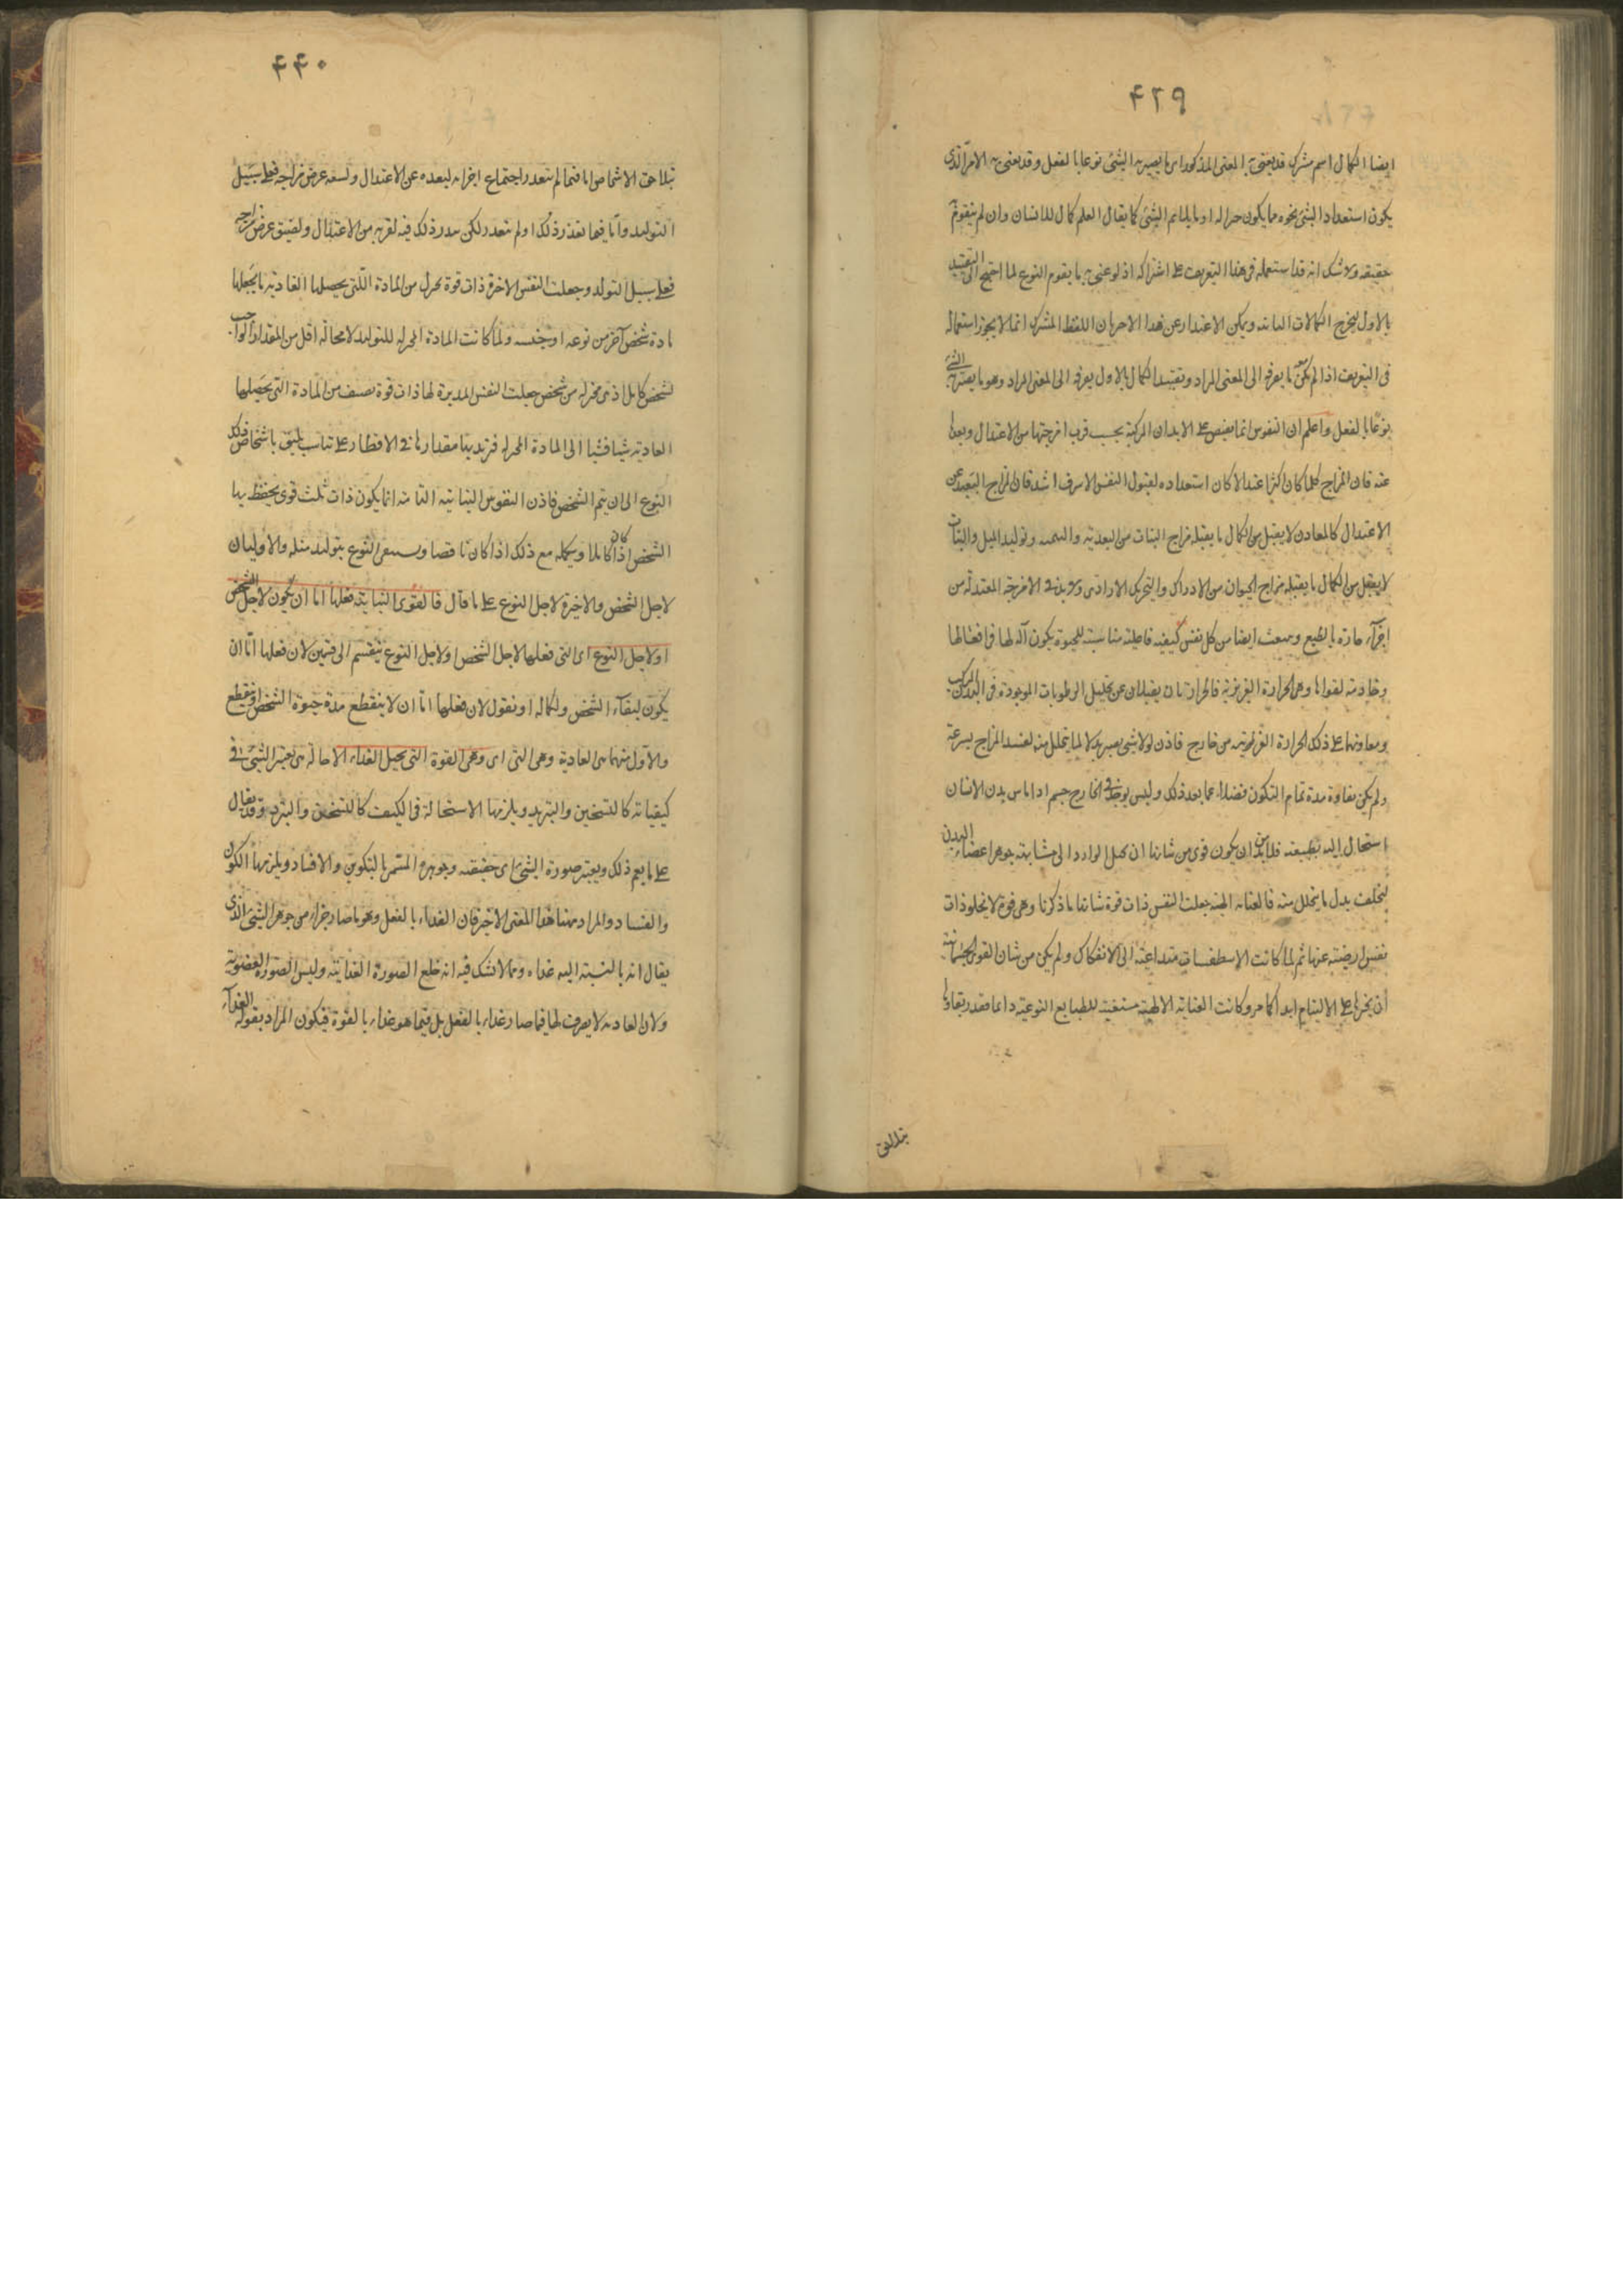 ۴۳۹
ايضا الكمال اسم مشترك قد يعنى به المعنى المذكور اى ما يصير به الشئ نوعا بالفعل وقد يعنى به الامر الذى
يكون استعداد الشئ نحوه مما يكون له او ما يلائم الشئ كما يقال العلم كمال للانسان وان لم يتقوم به
حقيقته ولا شك انه قد استعمله فى هذا التعريف على اشتراكه اذ لو عنى به ما يقوم النوع لما احتيج الى التقييد
بالاول ليخرج الكمالات الثانية ويمكن الاعتذار عن هذا الاخير بان اللفظ المشترك انما لا يجوز استعماله
فى التعريف اذا لم يكن معه ما يصرفه الى المعنى المراد وتقييد الكمال بالاول يصرفه الى المعنى المراد وهو ما يصير به الشئ
نوعا بالفعل واعلم ان النفوس انما تفيض على الابدان المركبة بحسب قرب امزجتها من الاعتدال وبعدها
عنه فان المزاج كلما كان اكثر اعتدالا كان استعداده لقبول النفس الاشرف اشد فان المزاج البعيد عن
الاعتدال كالمعادن لا يقبل من الكمال ما يقبله مزاج النبات من التغذية والتنمية وتوليد المثل والنبات
لا يقبل من الكمال ما يقبله مزاج الحيوان من الادراك والتحريك الارادى ولا بد فى الامزجة المعتدلة من
اجزاء حارة بالطبع وينبعث ايضا من كل نفس كيفية فاعلة مناسبة للحيوة يكون آلة لها فى افعالها
وخادمة لقواها وهى الحرارة الغريزية فالحرارتان يقبلان عن تحليل الرطوبات الموجودة فى البدن المركب
ويعاونهما على ذلك الحرارة الغريبة من خارج فاذن لولا شئ يصير بدلا لما يتحلل منه لفسد المزاج بسرعة
ولم يكن بقاؤه مدة تمام التكون فضلا عما بعد ذلك وليس يوجد فى الخارج جسم اذا ماس بدن الانسان
استحال اليه بطبيعته فلا بد من ان يكون قوى من شانها ان تحيل الوارد الى مشابهة جوهر اعضاء البدن
ليخلف بدل ما يتحلل منه فالعناية الالهية جعلت النفس ذات قوة شانها ما ذكرنا وهى قوة لا يخلو ذات
نفس ارضية عنها ثم لما كانت الاسطقسات متداعية الى الانفكاك ولم يكن من شان القوى الجسمانية
ان تجبرها على الالتيام ابدا كما مر وكانت العناية الالهية مستبقية للطبايع النوعية دائما فقدر بقاؤها
بتلاحق
۴۴۰
بتلاحق الاشخاص اما فيما لم يتعذر اجتماع اجزائه لبعده عن الاعتدال ولسعة عرض مزاجه فعلى سبيل
التوليد واما فيما تعذر ذلك او لم يتعذر لكن يندر ذلك فيه لقربه من الاعتدال ولضيق عرض مزاجه
فعلى سبيل التولد وجعلت النفس الاخيرة ذات قوة تخزل من المادة التى يحصلها الغاذية ما يجعلها
مادة شخص آخر من نوعه او جنسه ولما كانت المادة المخزلة للتوليد لا محالة اقل من المقدار الواجب
لشخص كامل اذ هى مخزلة من شخص جعلت النفس المدبرة لها ذات قوة تضيف من المادة التى يحصلها
الغاذية شيئا فشيئا الى المادة المخزلة فتزيد بها مقدارها فى الاقطار على تناسب يليق باشخاص ذلك
النوع الى ان يتم الشخص فاذن النفوس النباتية التامة انما يكون ذات ثلث قوى يحفظ بها
الشخص اذا كان كاملا ويكمله مع ذلك اذا كان ناقصا ويستبقى النوع بتوليد مثله والاوليان
لاجل الشخص والاخيرة لاجل النوع على ما قال فالقوى النباتية فعلها اما ان يكون لاجل الشخص
او لاجل النوع اى التى فعلها لاجل الشخص او لاجل النوع ينقسم الى قسمين لان فعلها اما ان
يكون لبقاء الشخص ولكماله او نقول لان فعلها اما ان لا ينقطع مدة حيوة الشخص او ينقطع
والاول منهما هى الغاذية وهى التى اى وهى القوة التى تحيل الغذاء الاحالة هى تغيير الشئ فى
كيفياته كالتسخين والتبريد ويلزمها الاستحالة فى الكيف كالتسخن والتبرد وقد يقال
على ما يعم ذلك ويغير صورة الشئ اى حقيقته وجوهره المسمى بالتكوين والافساد ويلزمها الكون
والفساد والمراد ههنا هذا المعنى الاخير فان الغذاء بالفعل وهو ما صار جزء من جوهر الشئ الذى
يقال انه بالنسبة اليه غذاء ومما لا شك فيه انه خلع الصورة الغذائية ولبس الصورة العضوية
ولان الغاذية لا تصرف لها فيما صار غذاء بالفعل بل فيما هو غذاء بالقوة فيكون المراد بقوله الغذاء